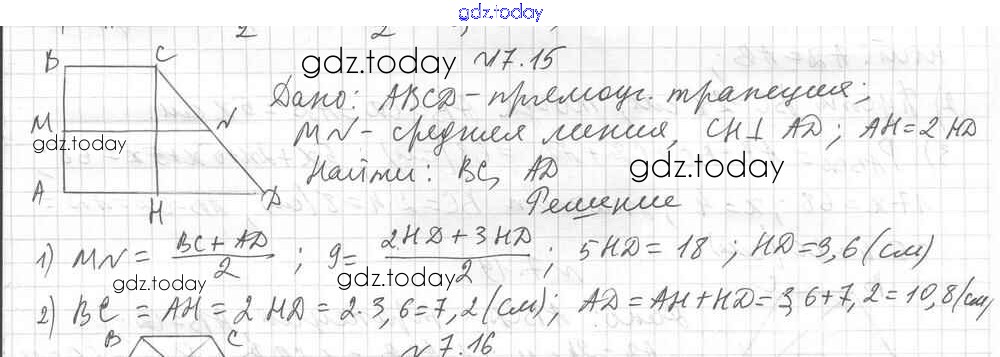 gdz.today
2 2
B C gdz.today №7.15
Дано: ABCD - прямоуг. трапеция;
M N MN - средняя линия, CH ⊥ AD; AH = 2 HD
gdz.today
Найти: BC, AD gdz.today
A H D Решение
1) MN = (BC + AD)/2 ; 9 = (2HD + 3HD)/2 ; 5HD = 18 ; HD = 3,6 (см)
gdz.today gdz.today
2) BC = AH = 2 HD = 2·3,6 = 7,2 (см); AD = AH + HD = 3,6 + 7,2 = 10,8 (см)
B C №7.16